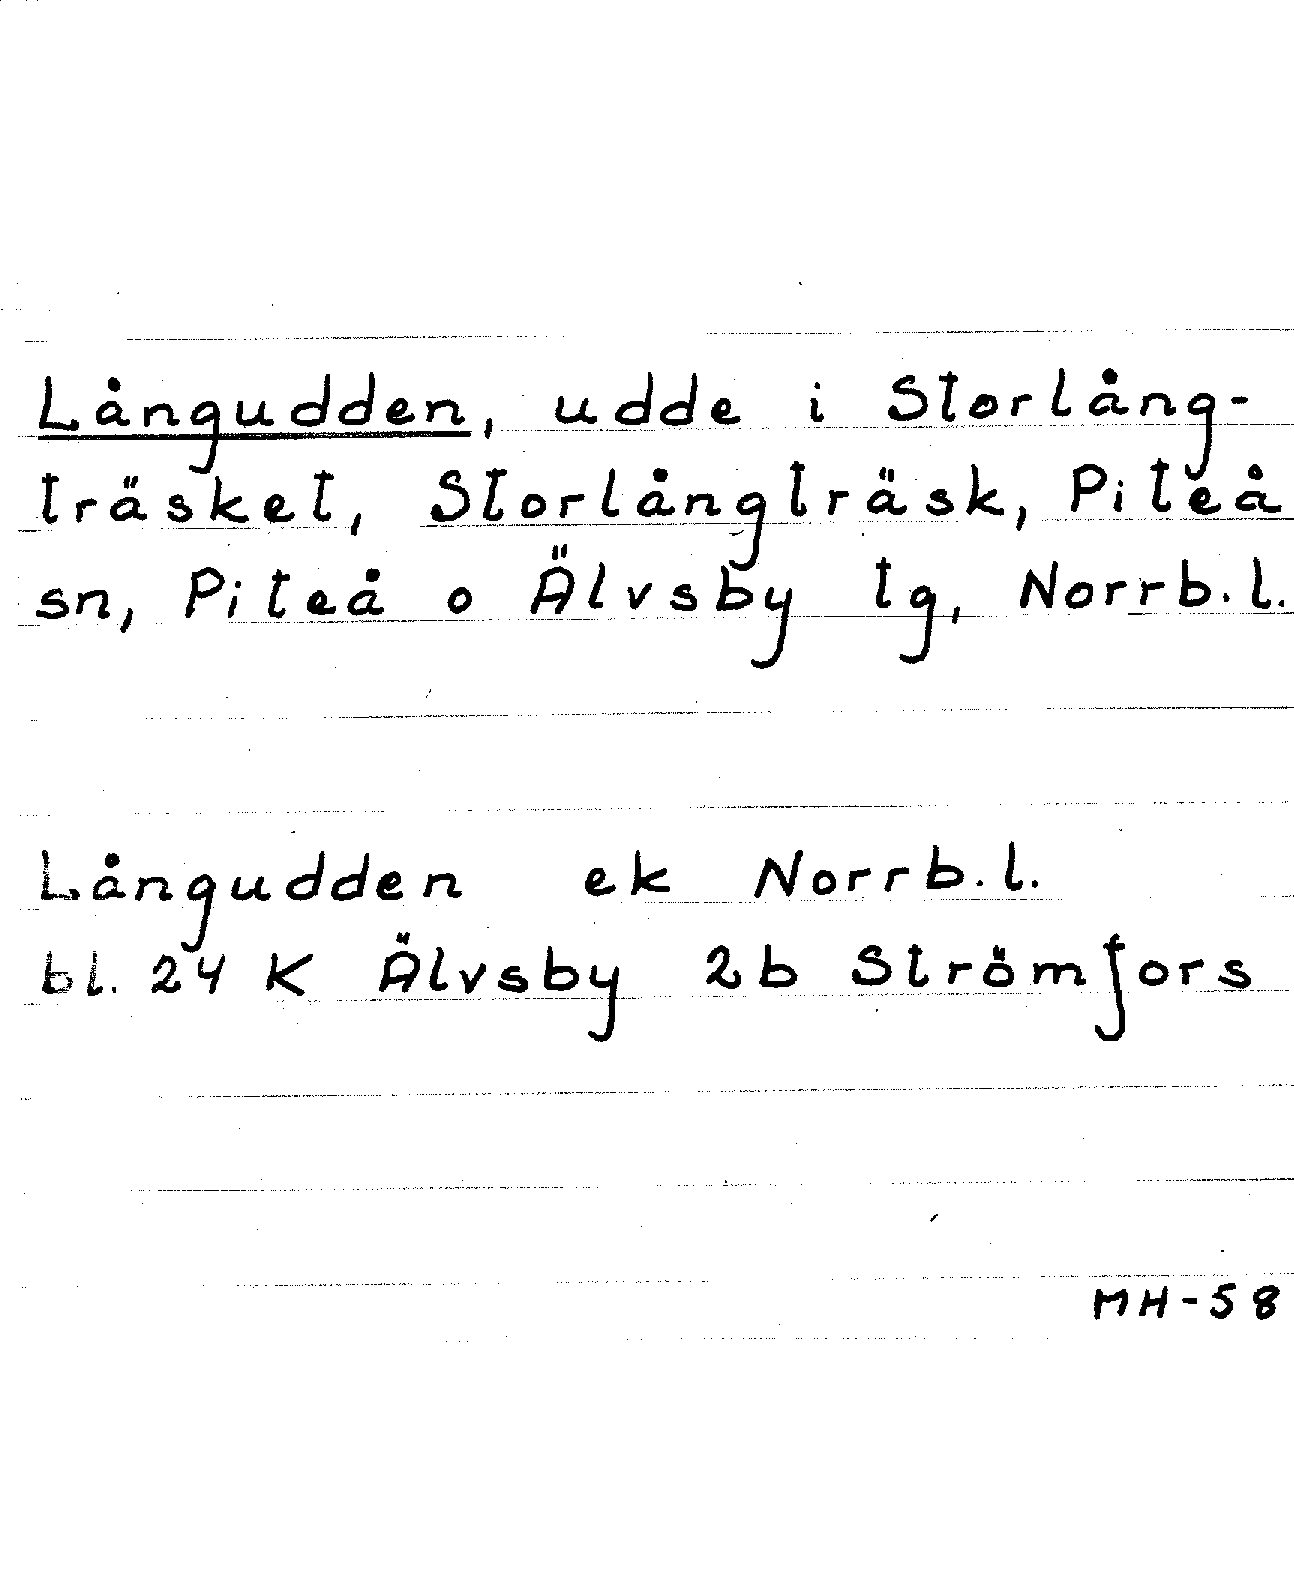 Långudden, udde i Storlång-
träsket, Storlångträsk, Piteå
sn, Piteå o Älvsby tg, Norrb.l.
Långudden ek Norrb.l.
bl. 24 K Älvsby 2b Strömfors
MH-58